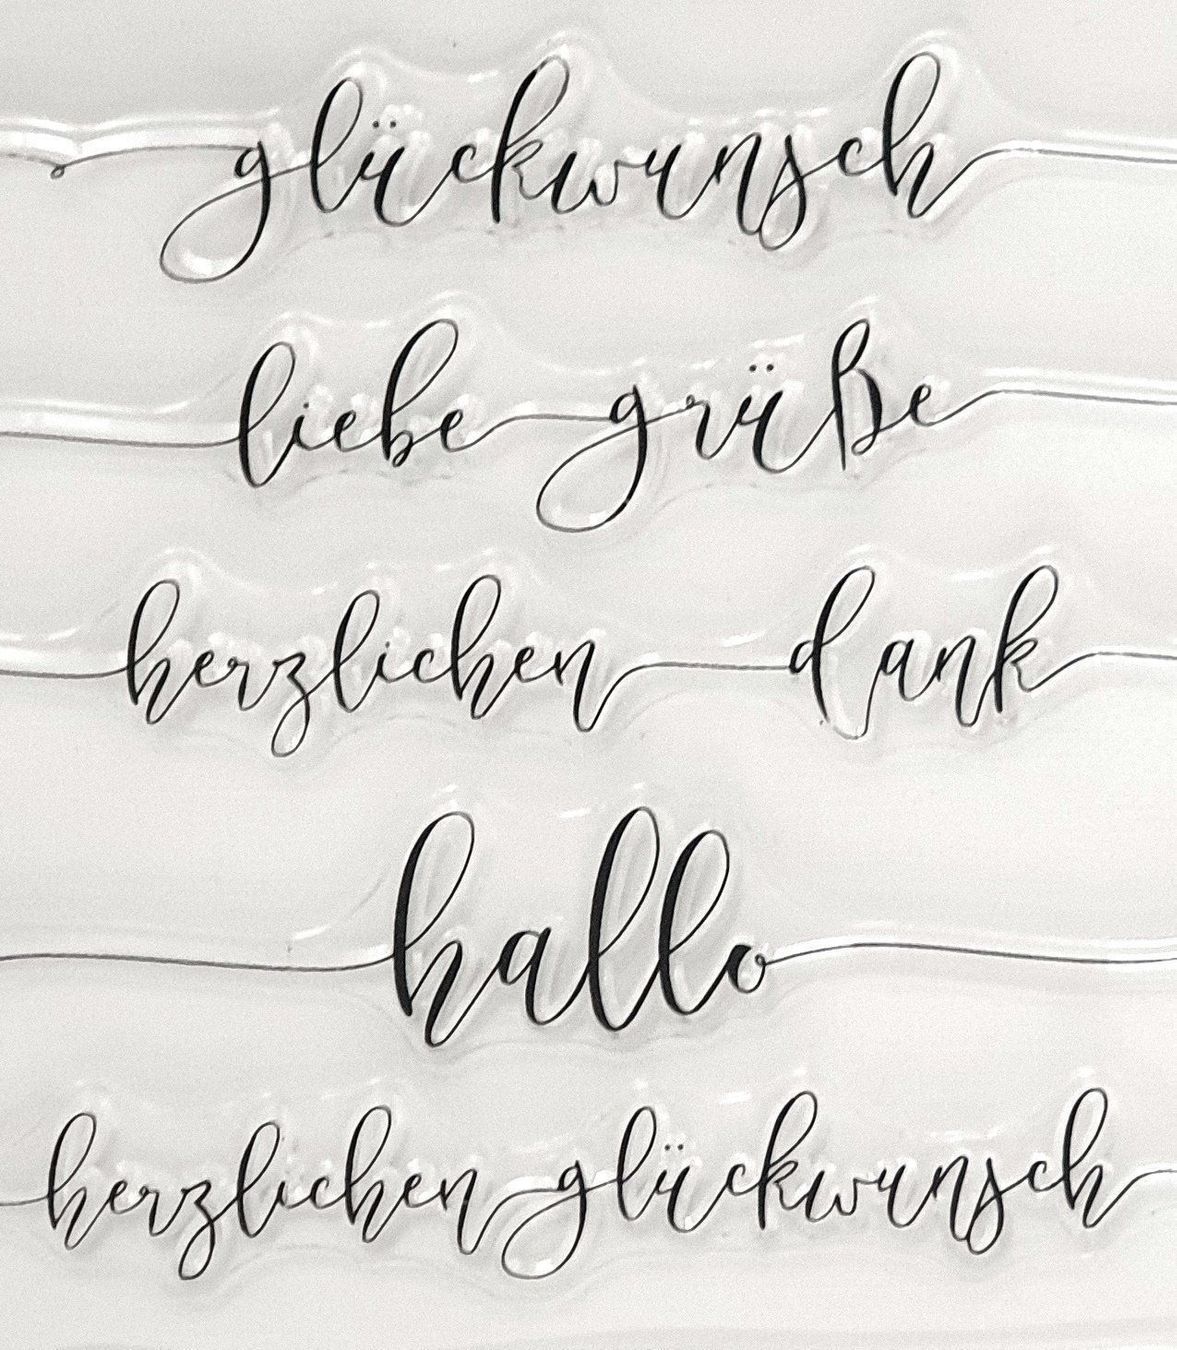 glückwunsch
liebe grüße
herzlichen dank
hallo
herzlichen glückwunsch